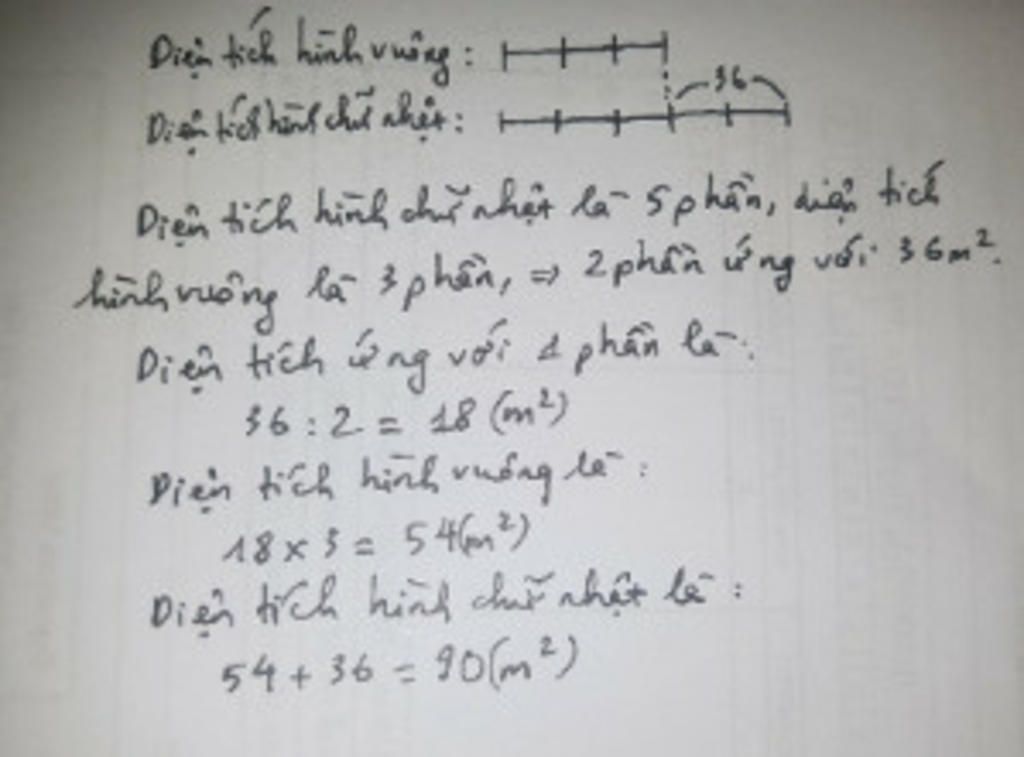 Diện tích hình vuông :
36
Diện tích hình chữ nhật :
Diện tích hình chữ nhật là 5 phần, diện tích
hình vuông là 3 phần, => 2 phần ứng với 36m².
Diện tích ứng với 1 phần là :
36 : 2 = 18 (m²)
Diện tích hình vuông là :
18 x 3 = 54(m²)
Diện tích hình chữ nhật là :
54 + 36 = 90(m²)